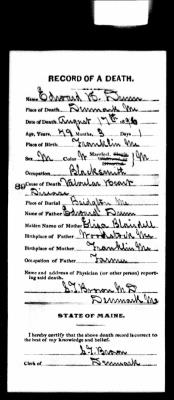 RECORD OF A DEATH.
Name Edward H. Dunn
Place of Death, Denmark Me
Date of Death August 17th 1896
Age, Years, 79 Months, 3 Days 1
Place of Birth Franklin Me
Sex M Color W Married, M
Occupation Blacksmith
89 Cause of Death Valvular Heart
Disease
Place of Burial Bridgton Me
Name of Father Edward Dunn
Maiden Name of Mother Eliza Blaisdell
Birthplace of Father Woodstock Me
Birthplace of Mother Franklin Me
Occupation of Father Farmer
Name and address of Physician (or other person) report-
ing said death.
S. T. Brown M D
Denmark Me
STATE OF MAINE.
I hereby certify that the above death record is correct to
the best of my knowledge and belief.
S. T. Brown
Clerk of Denmark